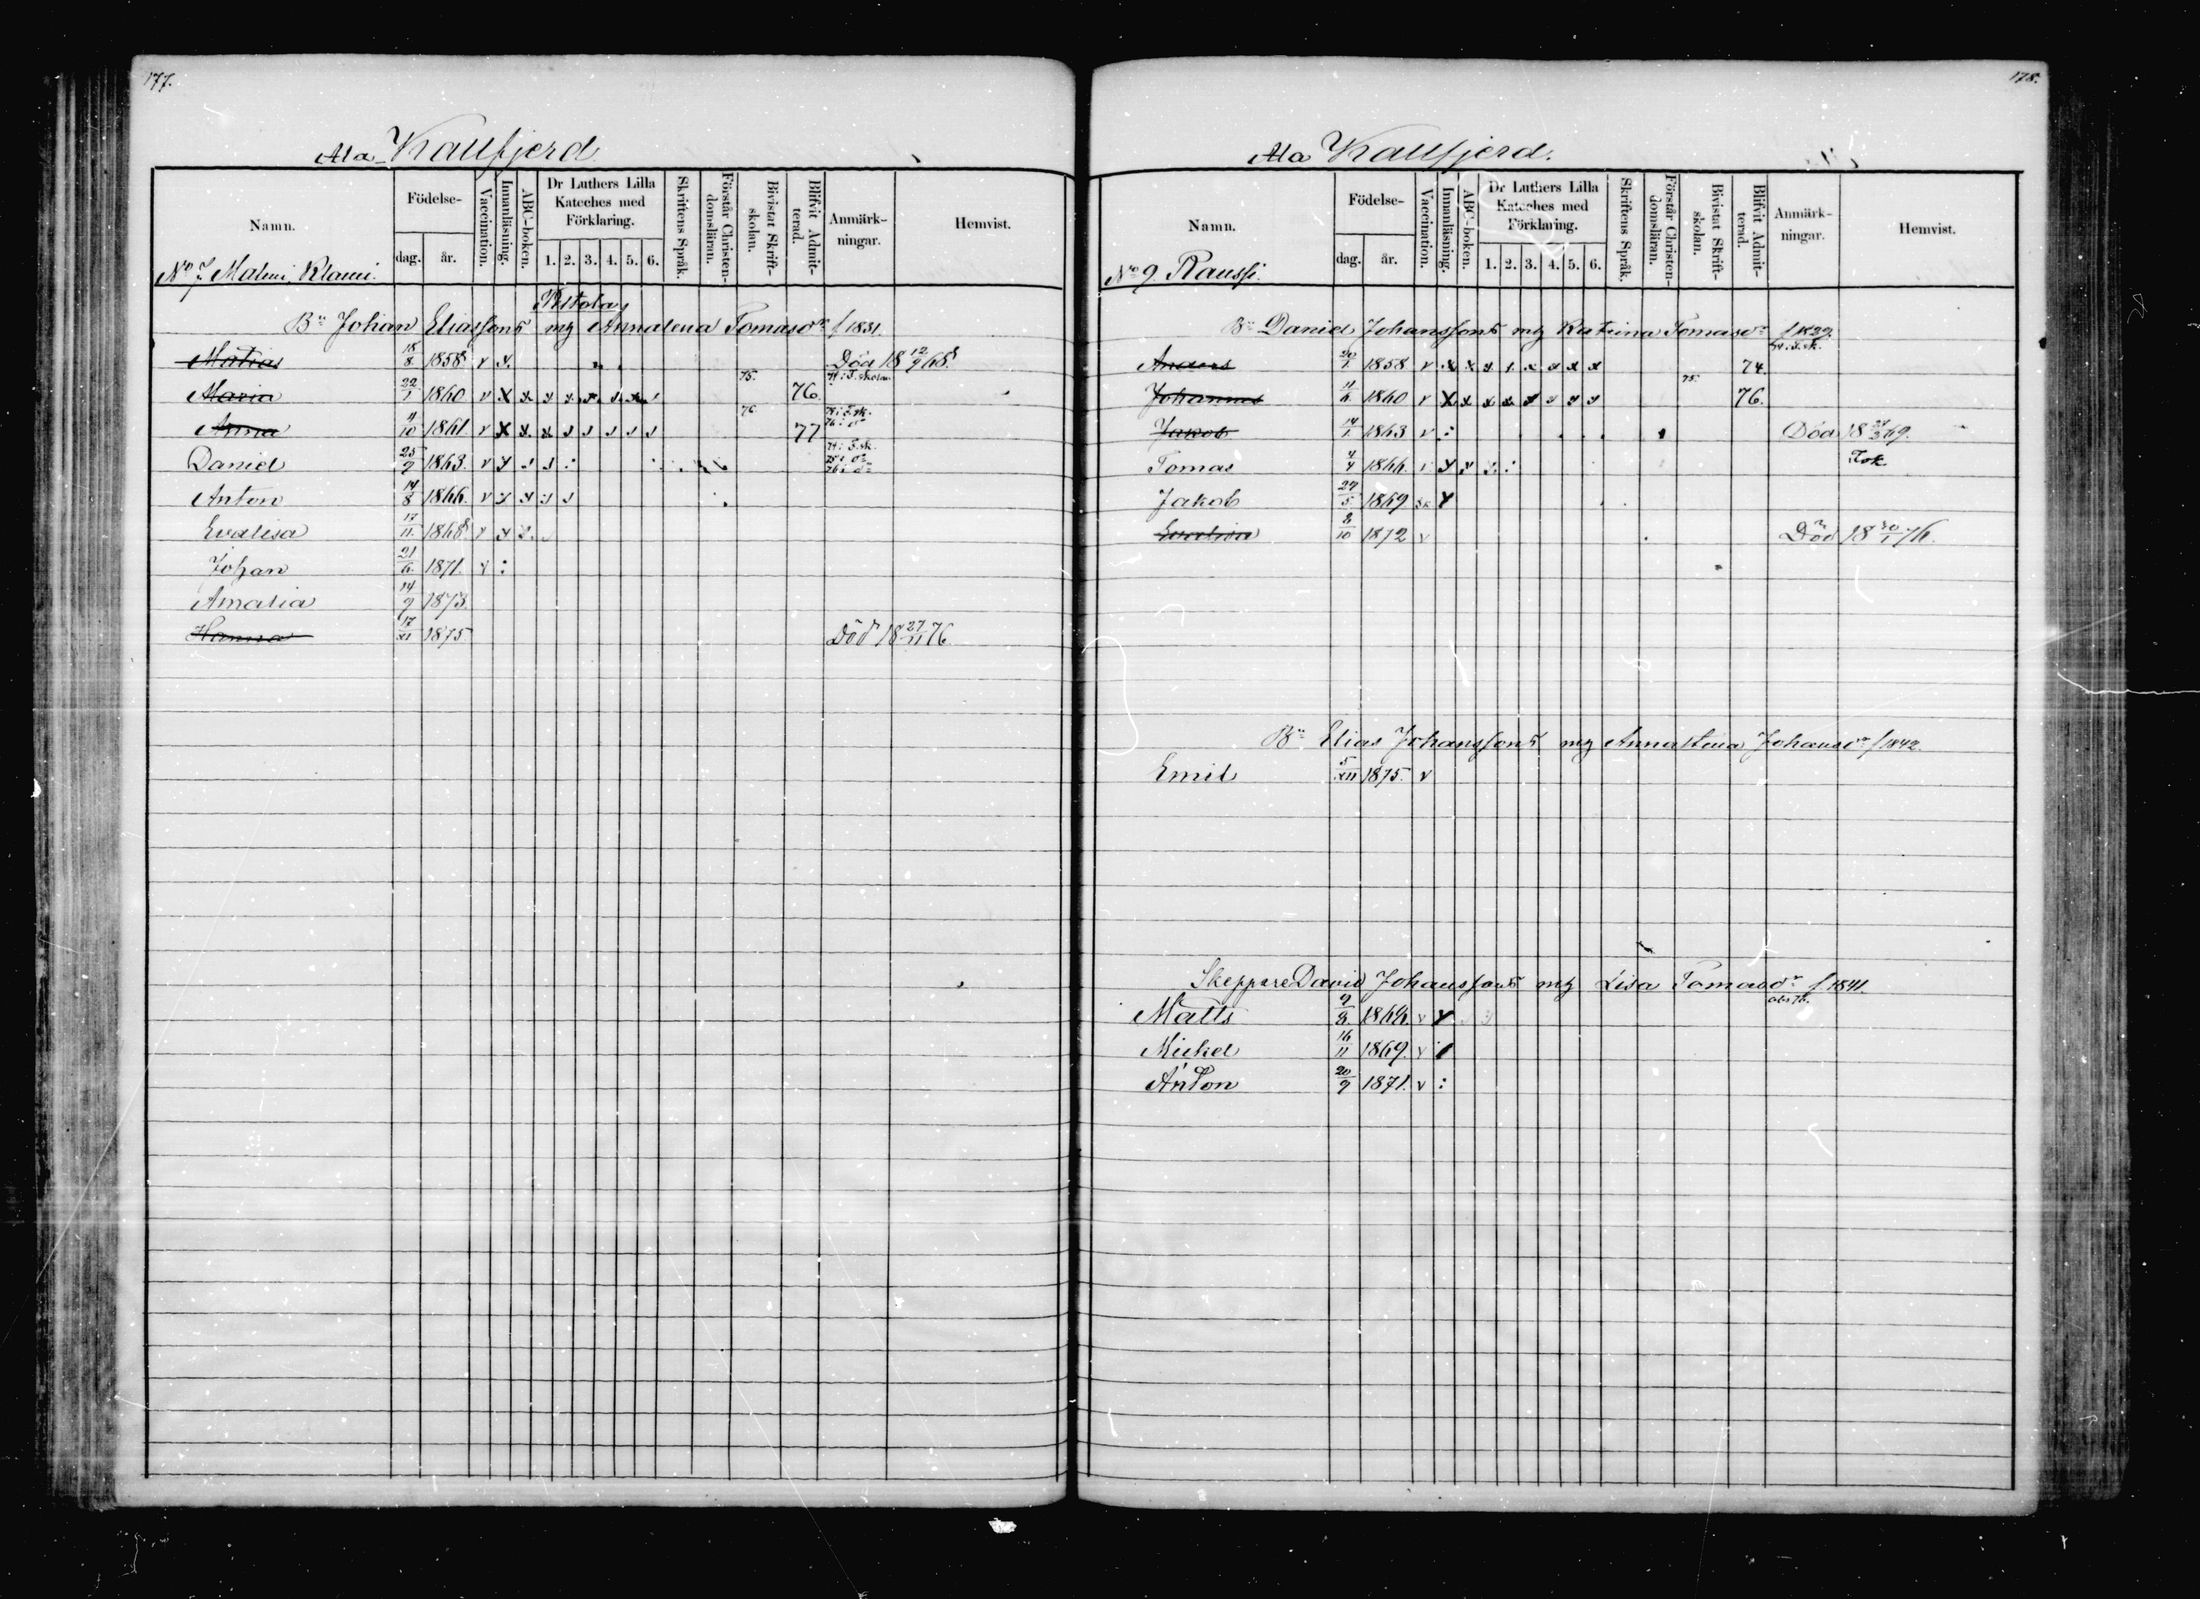 177.
Ala Kallfjerd.
Namn.
Födelse-
dag.
år.
Vaccination.
Innanläsning.
ABC-boken.
Dr Luthers Lilla Kateches med Förklaring.
1. 2. 3. 4. 5. 6.
Skriftens Språk.
Förstår Christendomsläran.
Bivistat Skriftskolan.
Blifvit Admitterad.
Anmärkningar.
Hemvist.
No 7 Malmi, Klami.
Bn Johan Eliassons mg Annalena Tomasdr f. 1831.
Matias 18/8 1858 v Död 18 12/9 68.
Maria 22/1 1860 v x x x x x 75. 76. 74 i S. skolan
Anna 4/10 1861. v x x x 76. 77
Daniel 25/9 1863. v
Anton 14/8 1866. v
Evalisa 17/11. 1868 v
Johan 21/6. 1871. v :
Amalia 14/9 1873.
Hanna 17/XI 1875 Död 18 27/11 76.
178.
Ala Kallfjerd.
Namn.
Födelse-
dag.
år.
Vaccination.
Innanläsning.
ABC-boken.
Dr Luthers Lilla Kateches med Förklaring.
1. 2. 3. 4. 5. 6.
Skriftens Språk.
Förstår Christendomsläran.
Bivistat Skriftskolan.
Blifvit Admitterad.
Anmärkningar.
Hemvist.
No 9. Raussi.
Bn Daniel Johanssons mg Katrina Tomasdr f. 1829.
Anders 1858 v x x x 74.
Johannes 1860 v x x x 75. 76.
Jakob 14/1 1863 v : Död 18 69.
Tomas 4/4 1866. v
Jakob 24/5 1869
Evalisa 8/10 1872 v Död 18 30/1 76.
Bn Elias Johanssons mg Annastina Johansdr f 1842.
Emil 5/XII 1875. v
Skeppare David Johanssons mg Lisa Tomasdr f. 1841.
Matts 1866. v
Mickel 16/11 1869. v
Anton 20/9 1871. v :